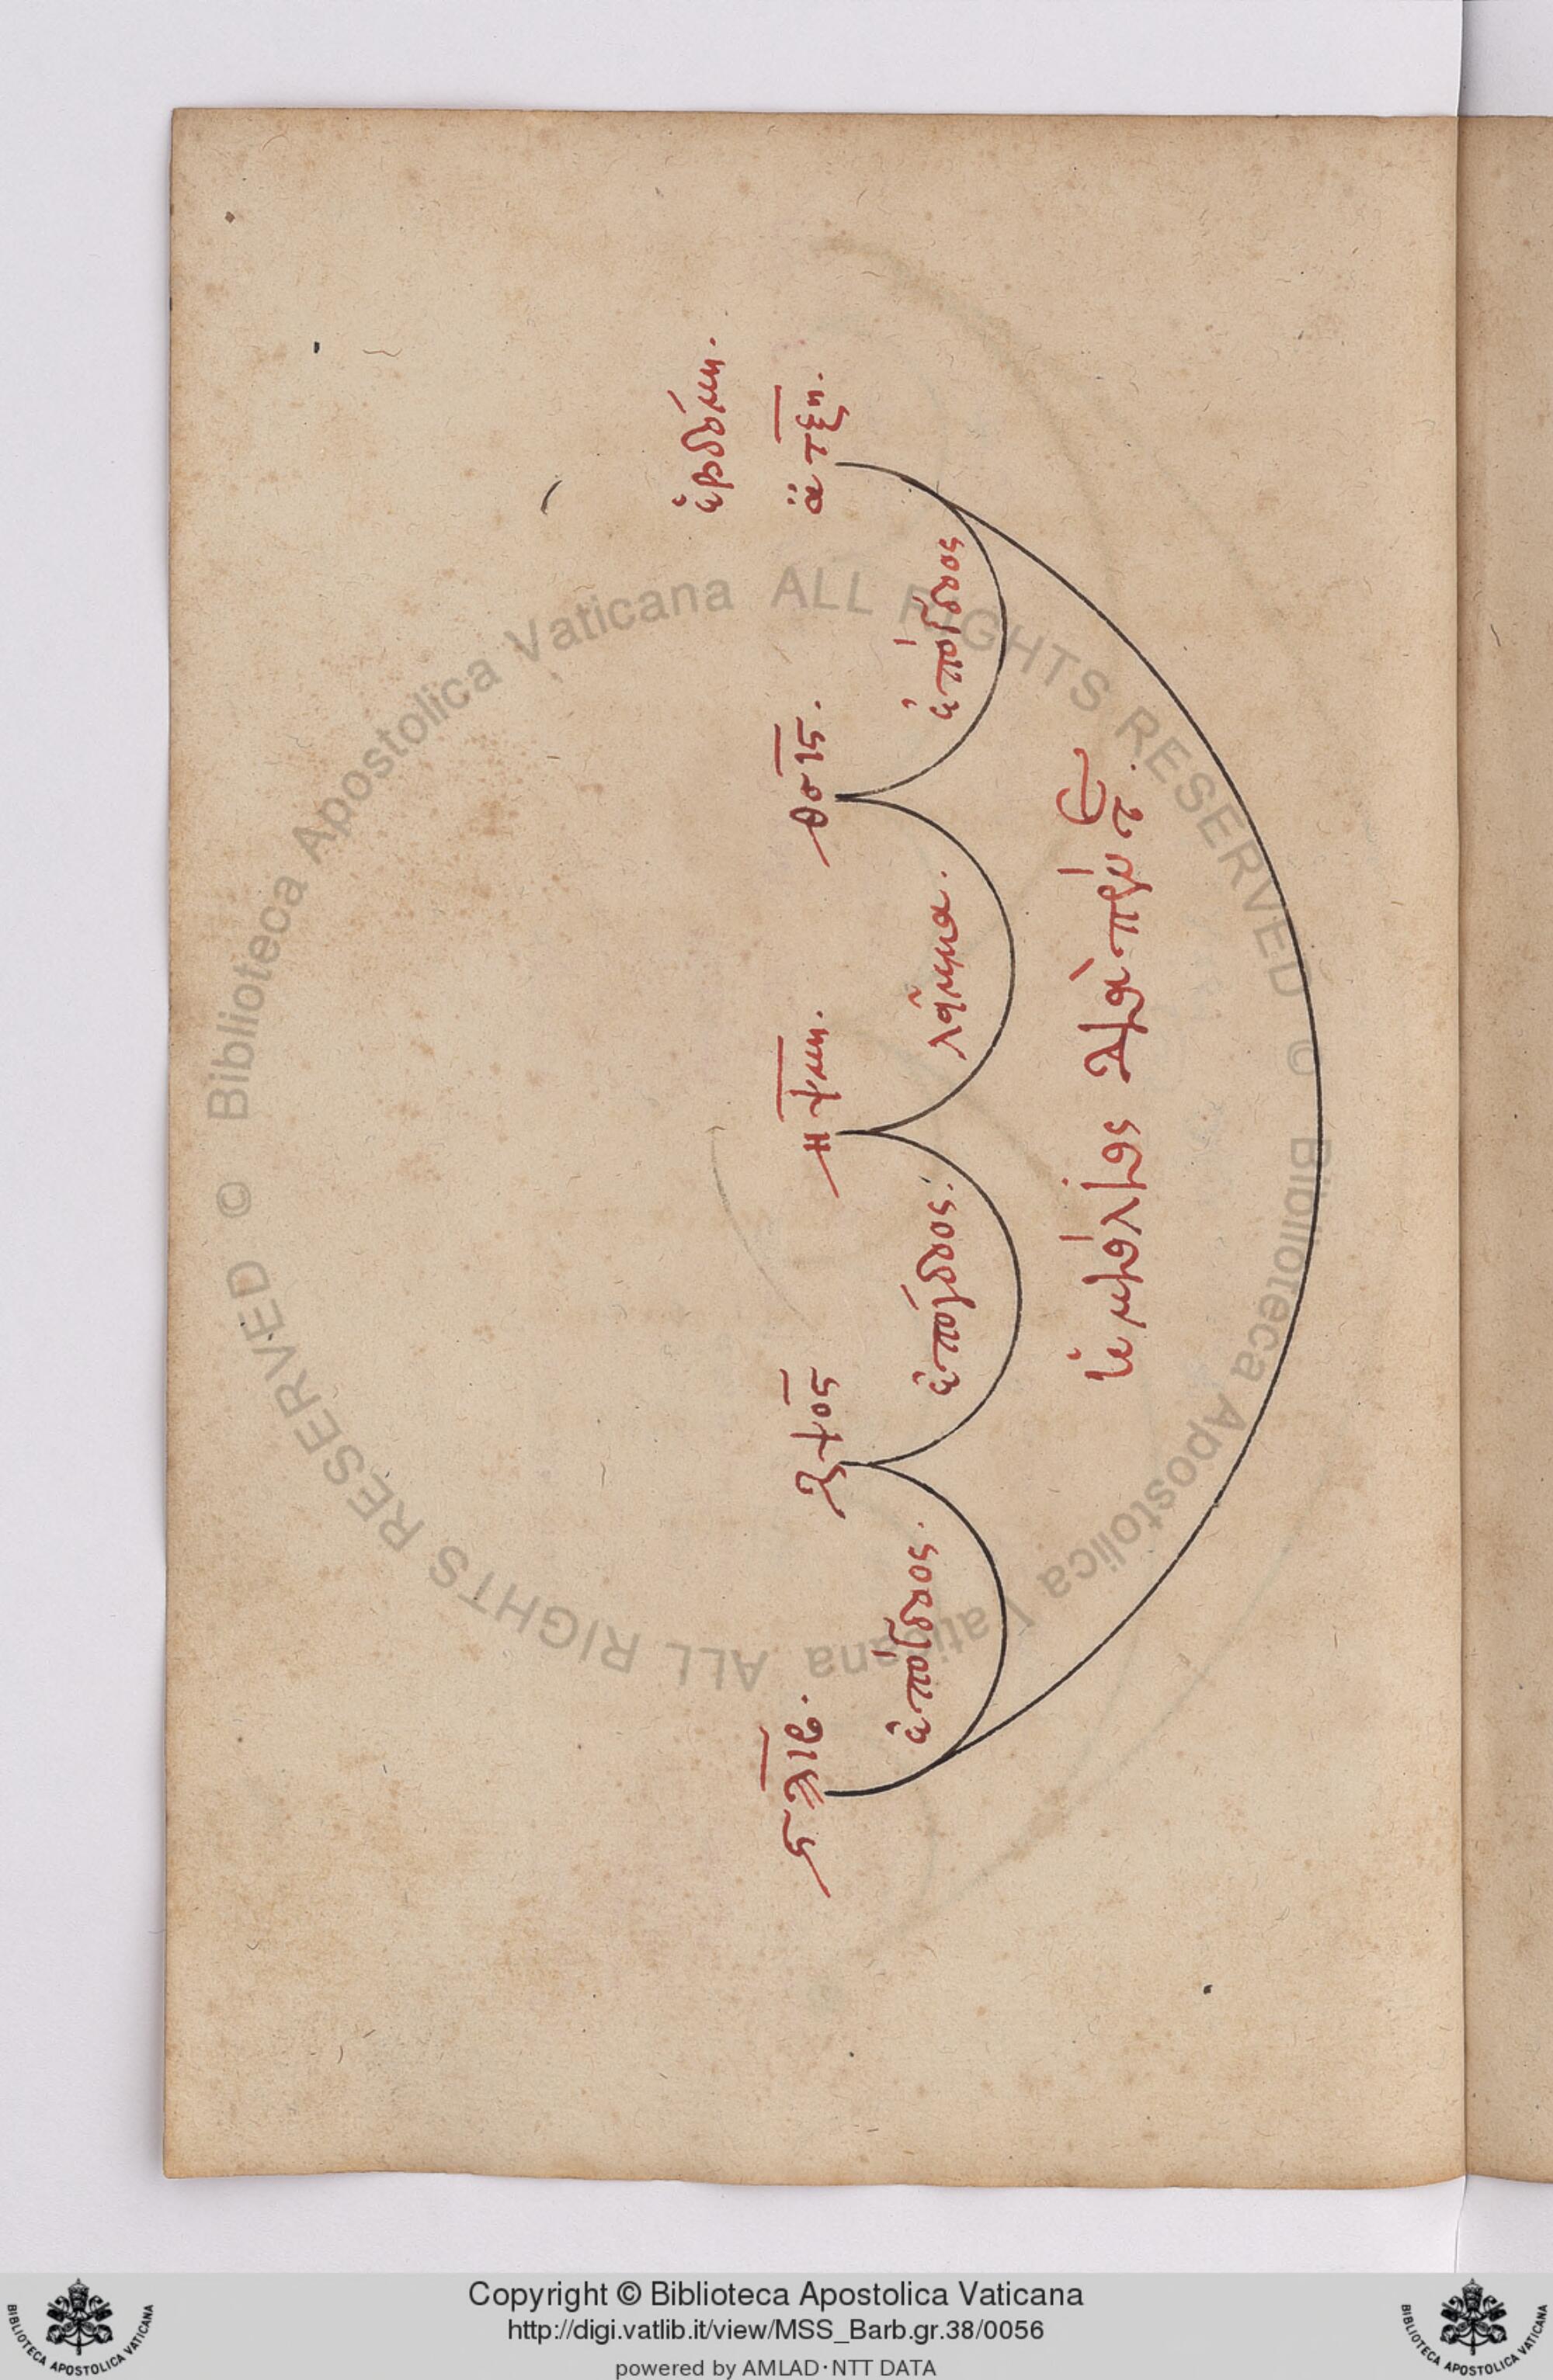 ἑβδόμη.
͵ϛϡιβ. ͵ζψοϛ ͵ηψμη. ͵θσιϛ. α̈τξη.
ἐπόγδοος. ἐπόγδοος. λεῖμμα. ἐπόγδοος
ἡμιόλιος διὰ πέντε.
© Biblioteca Apostolica Vaticana ALL RIGHTS RESERVED © Biblioteca Apostolica Vaticana ALL RIGHTS RESERVED
Copyright © Biblioteca Apostolica Vaticana
http://digi.vatlib.it/view/MSS_Barb.gr.38/0056
powered by AMLAD·NTT DATA
BIBLIOTECA APOSTOLICA VATICANA
BIBLIOTECA APOSTOLICA VATICANA